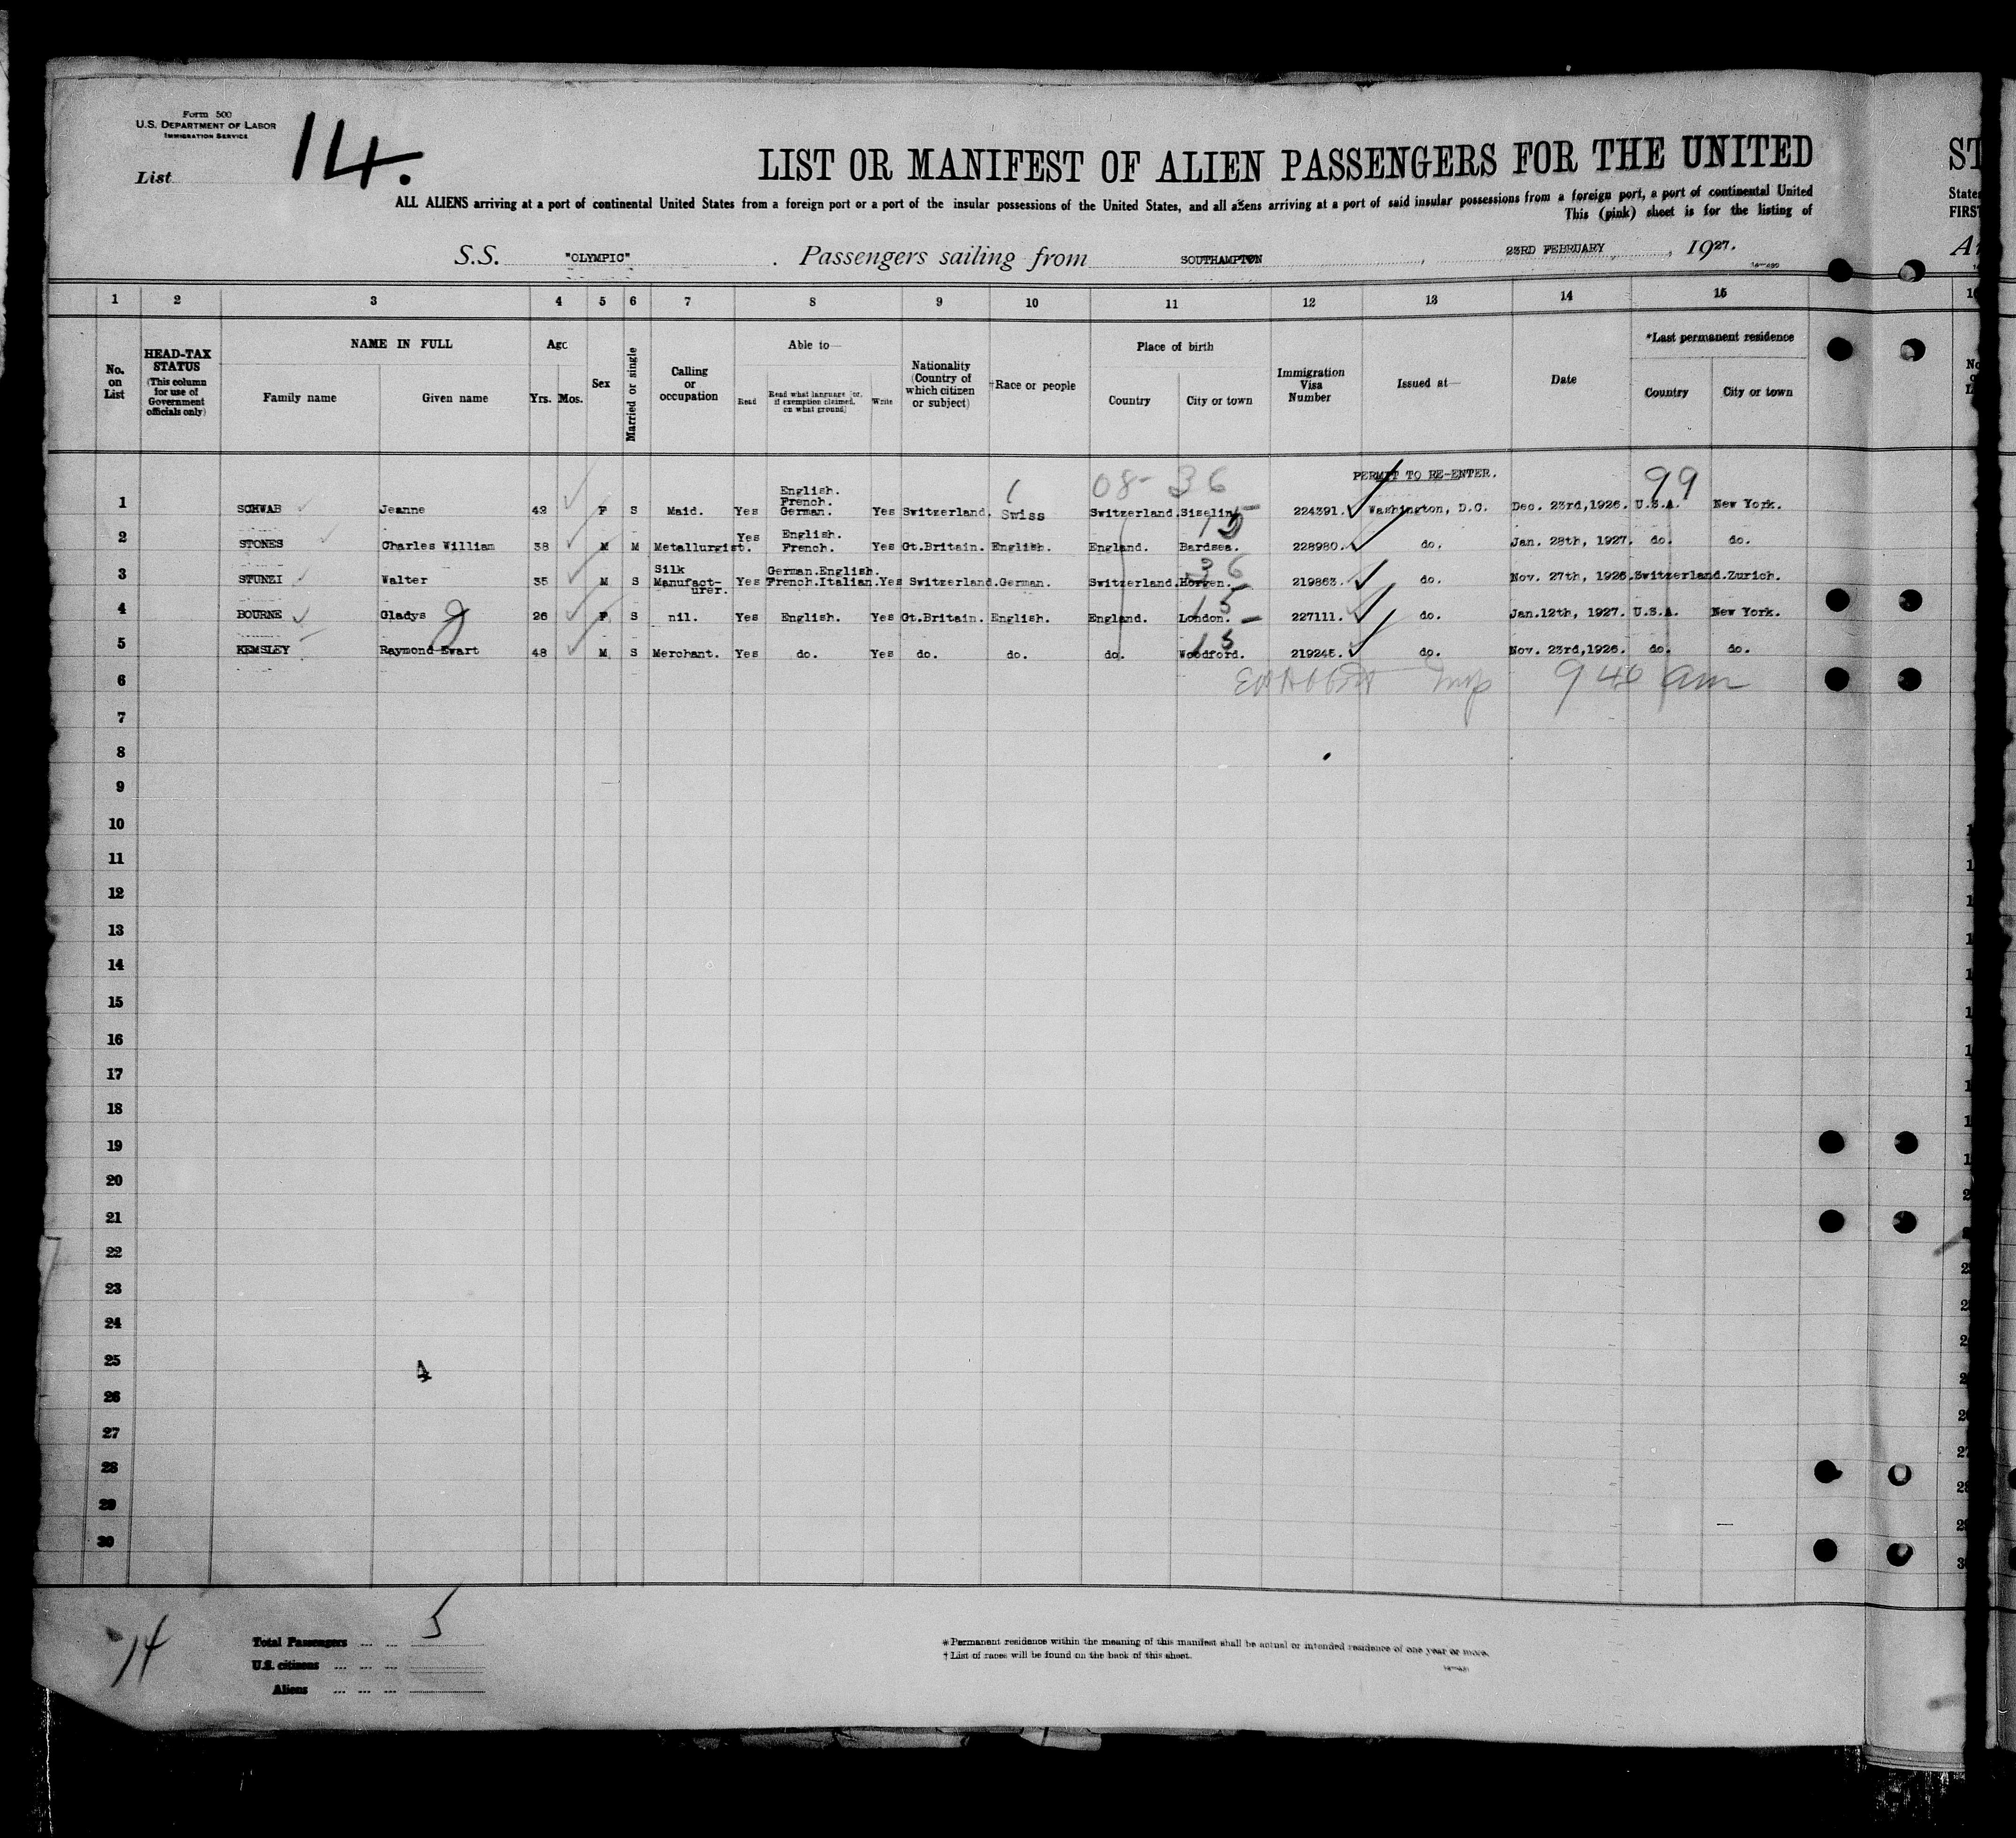 Form 500
U.S. DEPARTMENT OF LABOR
IMMIGRATION SERVICE
List 14.
LIST OR MANIFEST OF ALIEN PASSENGERS FOR THE UNITED ST
ALL ALIENS arriving at a port of continental United States from a foreign port or a port of the insular possessions of the United States, and all aliens arriving at a port of said insular possessions from a foreign port, a port of continental United States
This (pink) sheet is for the listing of FIRST
S.S. "OLYMPIC" . Passengers sailing from SOUTHAMPTON , 23RD FEBRUARY , 1927.
1 2 3 4 5 6 7 8 9 10 11 12 13 14 15
No. on List
HEAD-TAX STATUS (This column for use of Government officials only)
NAME IN FULL
Family name Given name
Age
Yrs. Mos.
Sex
Married or single
Calling or occupation
Able to—
Read Read what language [or, if exemption claimed, on what ground] Write
Nationality (Country of which citizen or subject)
†Race or people
Place of birth
Country City or town
Immigration Visa Number
Issued at—
Date
*Last permanent residence
Country City or town
08-36 PERMIT TO RE-ENTER. 99
1 SCHWAB Jeanne 42 F S Maid. Yes English. French. German. Yes Switzerland. Swiss Switzerland. 224391. Washington, D.C. Dec. 23rd,1926. U.S.A. New York.
2 STONES Charles William 38 M M Metallurgist. Yes English. French. Yes Gt.Britain. English. England. Bardsea. 15 228980. do. Jan. 28th, 1927. do. do.
3 STUNZI Walter 35 M S Silk Manufacturer. Yes German.English. French.Italian. Yes Switzerland. German. Switzerland. Horgen. 36 219863. do. Nov. 27th, 1926. Switzerland. Zurich.
4 BOURNE Gladys 26 F S nil. Yes English. Yes Gt.Britain. English. England. London. 15 227111. do. Jan.12th, 1927. U.S.A. New York.
5 KEMSLEY Raymond Ewart 48 M S Merchant. Yes do. Yes do. do. do. Woodford. 15 219245. do. Nov. 23rd,1926. do. do.
6 940 am
7
8
9
10
11
12
13
14
15
16
17
18
19
20
21
22
23
24
25
26
27
28
29
30
4
14
Total Passengers ... ... 5
U.S. citizens ... ... ...
Aliens ... ... ...
* Permanent residence within the meaning of this manifest shall be actual or intended residence of one year or more.
† List of races will be found on the back of this sheet.